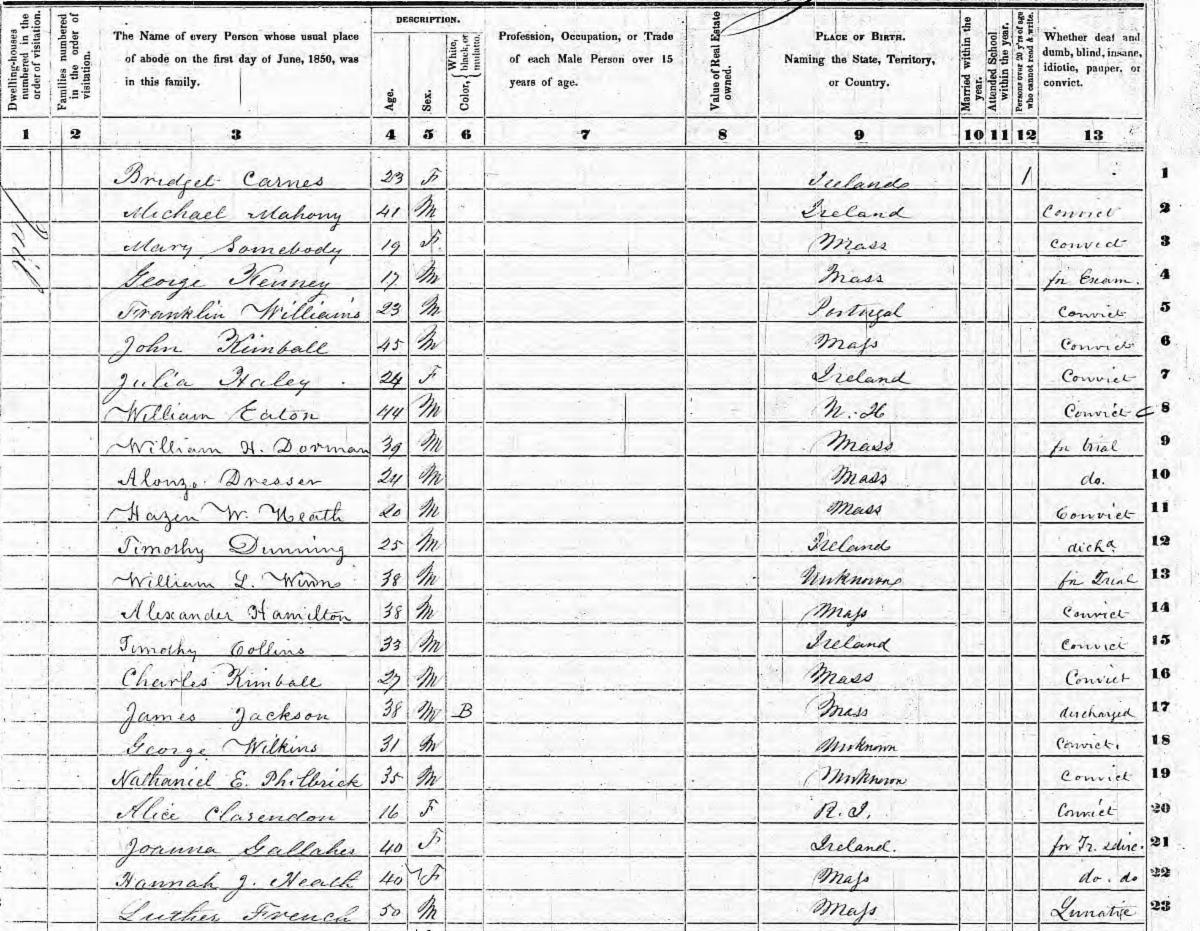 DESCRIPTION.
Dwelling-houses numbered in the order of visitation.
Families numbered in the order of visitation.
The Name of every Person whose usual place of abode on the first day of June, 1850, was in this family.
Age.
Sex.
Color, White, black, or mulatto.
Profession, Occupation, or Trade of each Male Person over 15 years of age.
Value of Real Estate owned.
PLACE OF BIRTH. Naming the State, Territory, or Country.
Married within the year.
Attended School within the year.
Persons over 20 y'rs of age who cannot read & write.
Whether deaf and dumb, blind, insane, idiotic, pauper, or convict.
1 2 3 4 5 6 7 8 9 10 11 12 13
Bridget Carnes 23 F Ireland 1 1
Michael Mahony 41 M Ireland Convict 2
Mary Somebody 19 F. Mass Convict 3
George Kenney 17 M Mass for Exam. 4
Franklin Williams 23 M Portugal Convict 5
John Kimball 45 M Mass Convict 6
Julia Haley 24 F Ireland Convict 7
William Eaton 44 M N. H Convict 8
William H. Dorman 39 M Mass for trial 9
Alonzo Dresser 24 M Mass do. 10
Hazen W. Heath 20 M Mass Convict 11
Timothy Dunning 25 M Ireland dichd 12
William L. Winns 38 M Unknown for Trial 13
Alexander Hamilton 38 M Mass Convict 14
Timothy Collins 33 M Ireland Convict 15
Charles Kimball 27 M Mass Convict 16
James Jackson 38 M B Mass discharged 17
George Wilkins 31 M Unknown Convict. 18
Nathaniel E. Philbrick 35 M Unknown Convict 19
Alice Clarendon 16 F R. I. Convict 20
Joanna Gallaher 40 F Ireland. for Tr. 21
Hannah J. Heath 40 F Mass do. do 22
Luther French 50 M Mass Lunatic 23